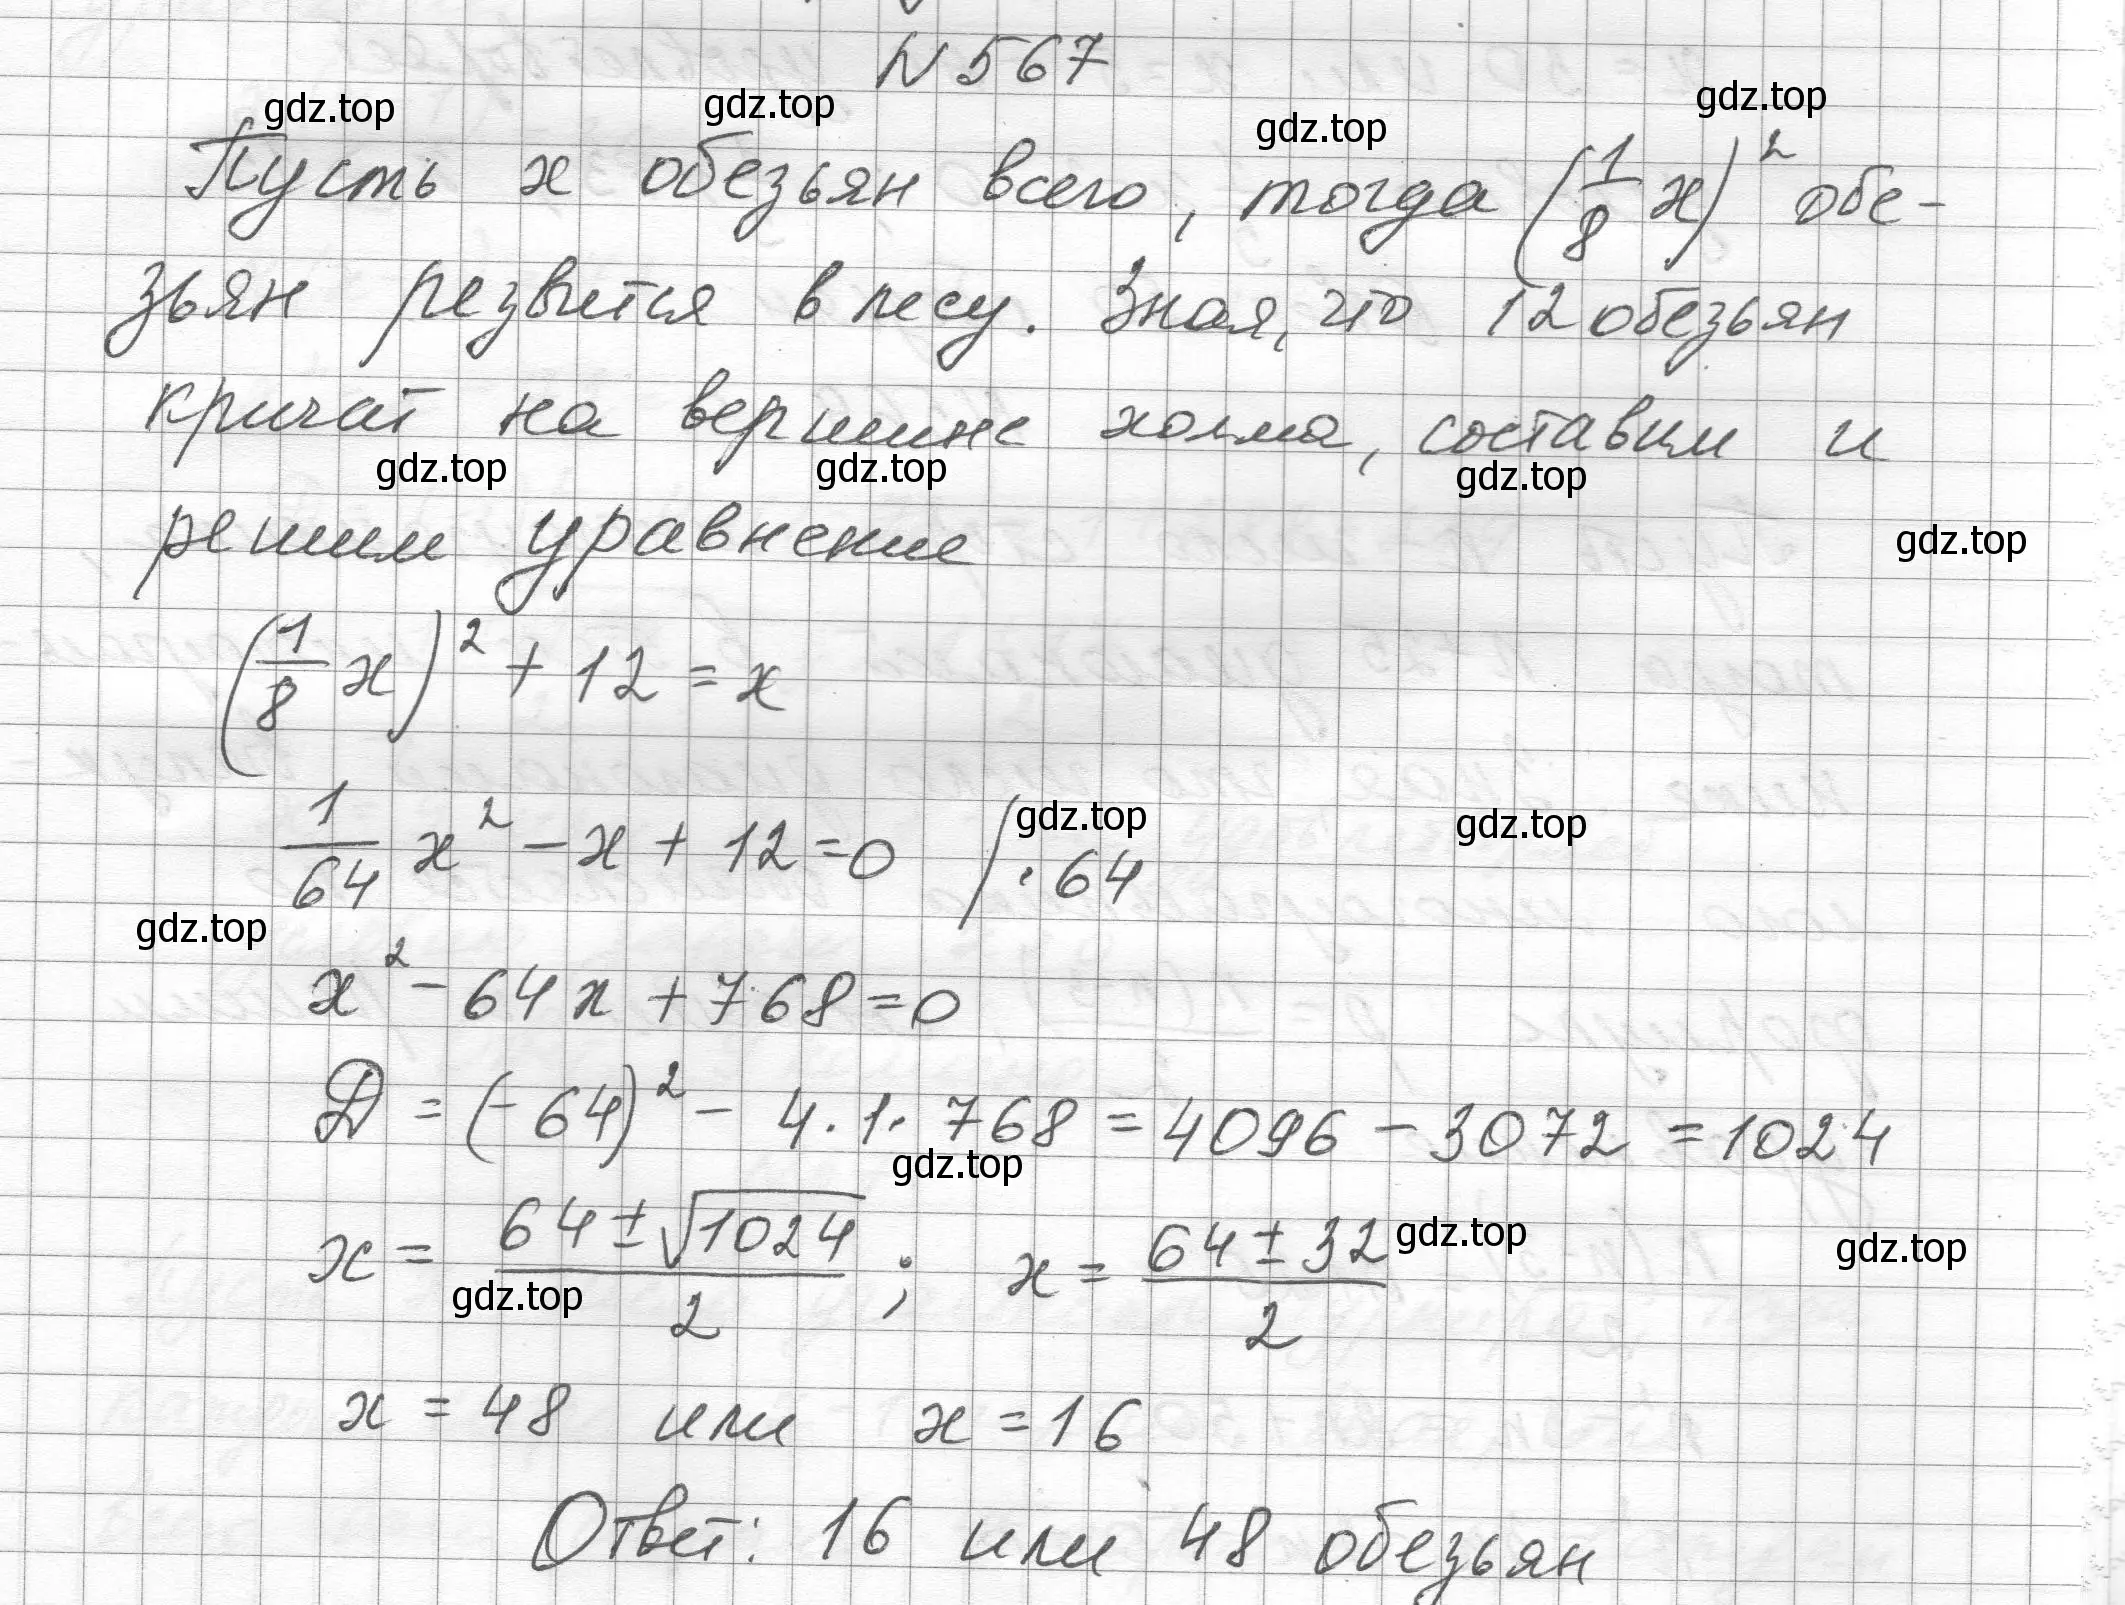 N 567
gdz.top gdz.top gdz.top gdz.top
Пусть x обезьян всего, тогда (1/8 x)² обе-
зьян резвится в лесу. Зная, что 12 обезьян
кричат на вершине холма, составим и
gdz.top gdz.top gdz.top
решим уравнение
gdz.top
(1/8 x)² + 12 = x
gdz.top gdz.top
1/64 x² - x + 12 = 0 | · 64
gdz.top
x² - 64x + 768 = 0
D = (-64)² - 4 · 1 · 768 = 4096 - 3072 = 1024
gdz.top
x = (64 ± √1024)/2 ; x = (64 ± 32)/2
gdz.top gdz.top gdz.top
x = 48 или x = 16
Ответ: 16 или 48 обезьян